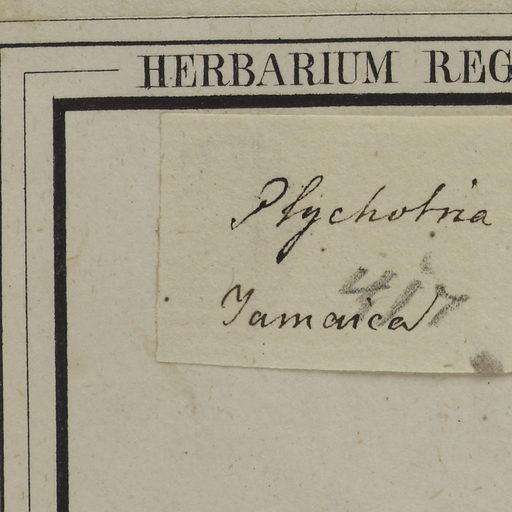 HERBARIUM REG
Psychotria
417
Jamaica